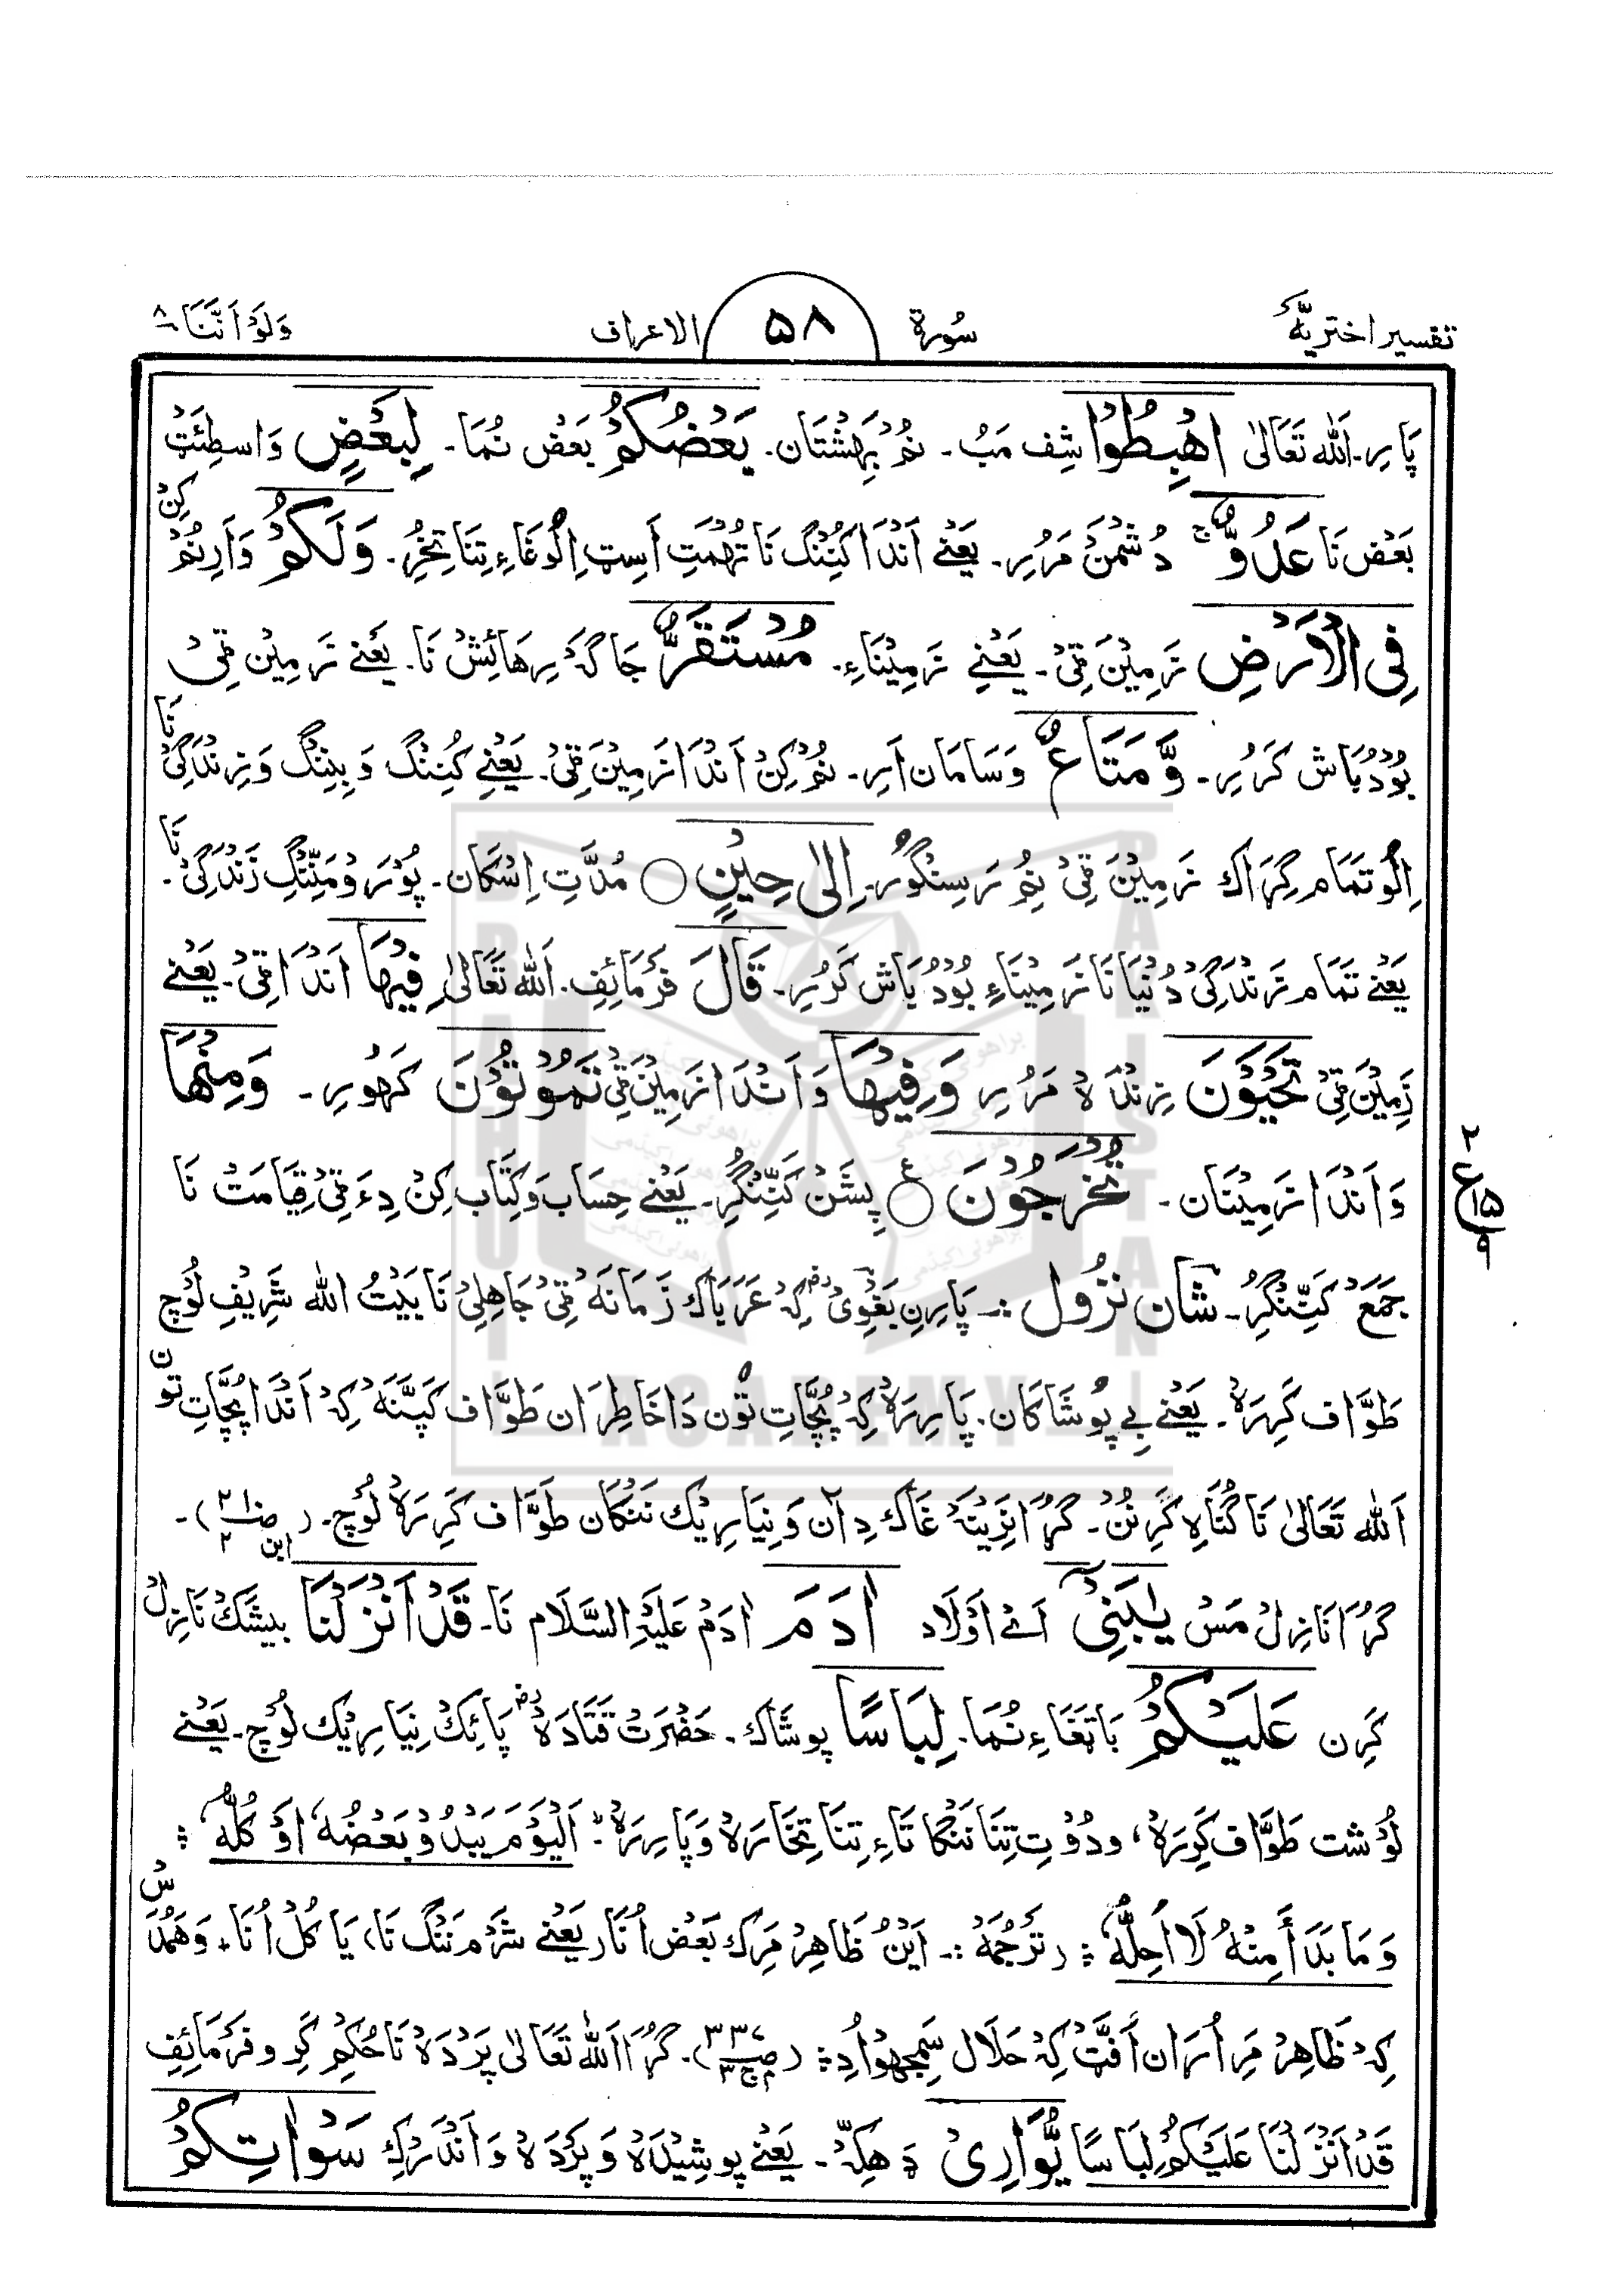 تفسیر اختریہ سُورۃ ۵۸ الاعراف وَلَوۡ اَنَّنَا ۸
پَارِیر۔ اَللہ تَعَالٰی اهۡبِطُوۡا شِف مَبُ۔ نُمۡ بِهِشۡتَان۔ بَعۡضُكُمۡ بَعۡض نُمَا۔ لِبَعۡضٍ وَاسطِئَتۡ کِنۡ
بَعۡض نَا عَدُوٌّ ۚ دُشۡمَنۡ مَرُیر۔ یَعۡنے اَنۡدَا کُنَنۡگ نَا تُهۡمَتِ اَسِٹ اِلُوغَاءِ تِنَا تِخِرُ۔ وَلَكُمۡ وَاَرِنُمۡ
فِی الۡاَرۡضِ زَمِیۡنَ قِیۡ۔ یَعۡنِے زَمِیۡنَاءِ۔ مُسۡتَقَرٌّ جَاگَہ رِهَائِشۡ نَا۔ یَعۡنے زَمِیۡنَ قِیۡ
بُوۡدُبَاش کَرُیر۔ وَّمَتَاعٌ وَسَامَان اَرِ۔ نُمۡ کِنۡ اَنۡدَا زَمِیۡنَ قِیۡ۔ یَعۡنِے کُنِنۡگ وَبِنِنۡگ وَزِنۡدَگِیۡ نَا
اِلُو تَمَام گِرَاک زَمِیۡنَ قِیۡ نُمۡ رَسِنۡگُورُ۔ اِلٰی حِیۡنٍ ○ مُدَّتِ اِسۡکَان۔ پُوۡرَ وَمَنِّنۡگِ زَنۡدَگِیۡ نَا۔
یَعۡنے تَمَام زَنۡدَگِیۡ دُنۡیَا نَا زَمِیۡنَاءِ بُوۡدُبَاش کَرُیر۔ قَالَ فَرۡمَائِف۔ اَللہ تَعَالٰی فِیۡهَا اَنۡدَا قِیۡ۔ یَعۡنے
زَمِیۡنَ قِیۡ تَحۡیَوۡنَ زِنۡدَہ مَرُیر وَفِیۡهَا وَاَنۡدَا زَمِیۡنَ قِیۡ تَمُوۡتُوۡنَ کَهُویر۔ وَمِنۡهَا
وَاَنۡدَا زَمِیۡنَان۔ تُخۡرَجُوۡنَ ○ ع پِشَنۡ کَنِّنۡگِرُ۔ یَعۡنے حِسَاب وَکِتَاب کِنۡ دِءَ قِیۡ قِیَامَتۡ نَا
۲ ع ۱۵ ۹
جَمَعۡ کَنِّنۡگِرُ۔ شَان نُزُول :۔ پَارِن بَغۡوِیۡ رح کِہ عَرَبَاک زَمَانَہ قِیۡ جَاهِلِیۡ نَا بَیۡتُ اللہ شَرِیۡفِ لُوۡچ
طَوَّاف کَرِرَہ۔ یَعۡنے بِے پُوشَاکَان۔ پَارِرَہ کِہ پُچَّاتِ تُون دَاخَاطِرَان طَوَّاف کَپَّنَہ کِہ اَنۡدَا پُچَّاتِ تُون
اَللہ تَعَالٰی نَا گُنَاہِ کَرِنُنۡ۔ گُڑَا نَرِیۡنَہ غَاک دِاٰن وَنِیَارِیۡک نَنۡکَان طَوَّاف کَرِرَہ لُوۡچ۔ (ابن ص۲ ۲)۔
گُڑَا نَازِلۡ مَسۡ یٰبَنِیۡۤ اَۓ اَوۡلَاد اٰدَمَ اٰدَمۡ عَلَیۡہِ السَّلَام نَا۔ قَدۡ اَنۡزَلۡنَا بیشَکۡ نَازِلۡ
کَرِن عَلَیۡكُمۡ بَاتَغَاءِ نُمَا۔ لِبَاسًا پوشَاک۔ حَضۡرَتۡ قَتَادَہ رض پَائِکۡ نِیَارِیۡک لُوۡچ۔ یَعۡنے
لُوۡشت طَوَّاف کَرِرَہ، ودُوۡتِ تِنَا نَنۡگَا تَاءِ تِنَا تِخَارَہ وَپَارِرَہ:۔ اَلۡیَوۡمَ یَبۡدُوۡ بَعۡضُہٗ اَوۡ کُلُّہٗ :
وَمَا بَدَا مِنۡهُ لَا اُحِلُّہٗ : (تَرۡجُمَہ :۔ اَیۡنُ ظَاهِرۡ مَرَک بَعۡض اُنَا (یَعۡنے شَرۡم نَنۡگ نَا) یَا کُلۡ اُنَا۔ وَهَمُدۡسۡ
کِہ ظَاهِرۡ مَرِ اُرَان اَفَّتۡ کِہ حَلَال سَمِجھُوۡ اُدِ:۔ (صـ۳۳۷ م ج۳)۔ گُڑَا اَللہ تَعَالٰی پَرۡدَہ نَا حُکِم کَرِ وفَرۡمَائِف
قَدۡ اَنۡزَلۡنَا عَلَیۡكُمۡ لِبَاسًا یُّوَارِیۡ دَهِکّ۔ یَعۡنے پوشِیۡدَہ وَپَرۡدَہ وَاَنۡدَرۡکِ سَوۡاٰتِكُمۡ